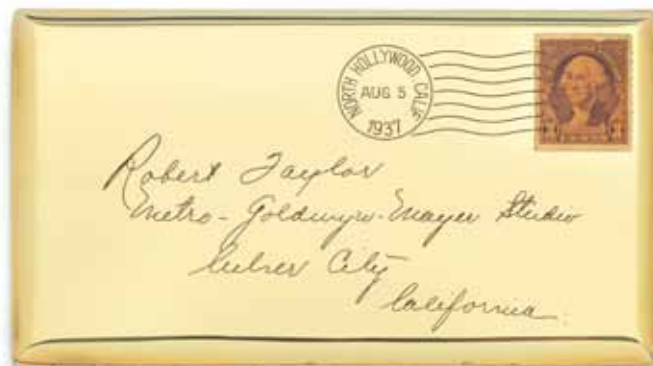 NORTH HOLLYWOOD, CALIF.
AUG 5
1937
Robert Taylor
Metro-Goldwyn-Mayer Studio
Culver City
California